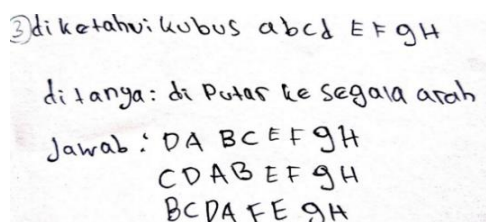 ③ diketahui kubus abcd EFgH
ditanya: di Putar ke segala arah
Jawab: DA BCEFgH
CDAB EFgH
BCDA FE gH